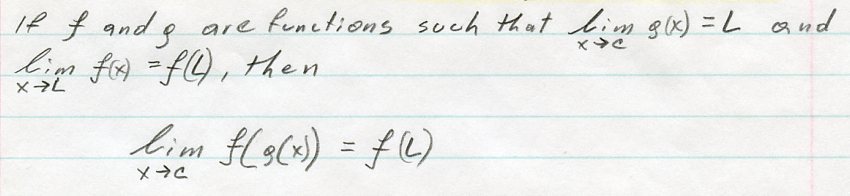 If f and g are functions such that lim x→c g(x) = L and
lim x→L f(x) = f(L), then
lim x→c f(g(x)) = f(L)